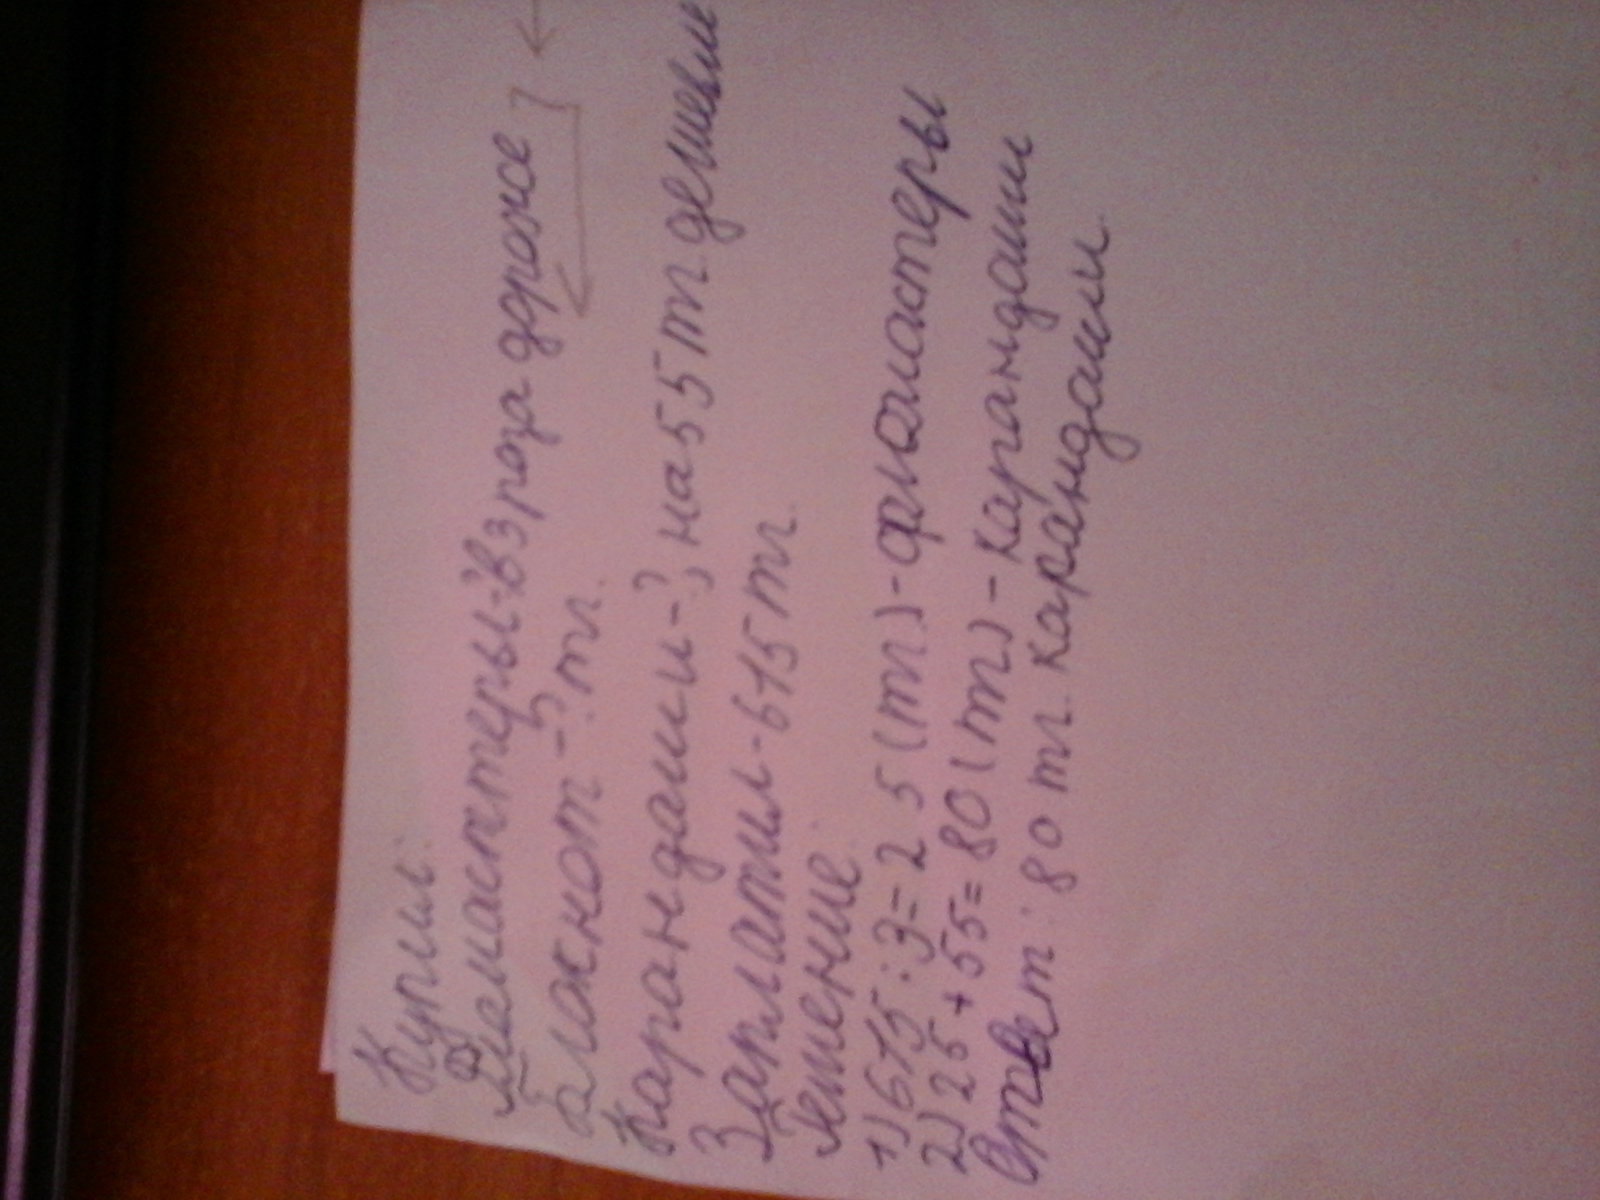 Купил:
Фломастеры-?в 3 раза дороже
Блокнот - ? тг.
Карандаши-?, на 55 тг дешевле
Заплатил-615 тг.
Решение:
1) 615:3=25(тг)-фломастеры
2) 25+55=80(тг)-карандаши
Ответ: 80 тг. карандаши.